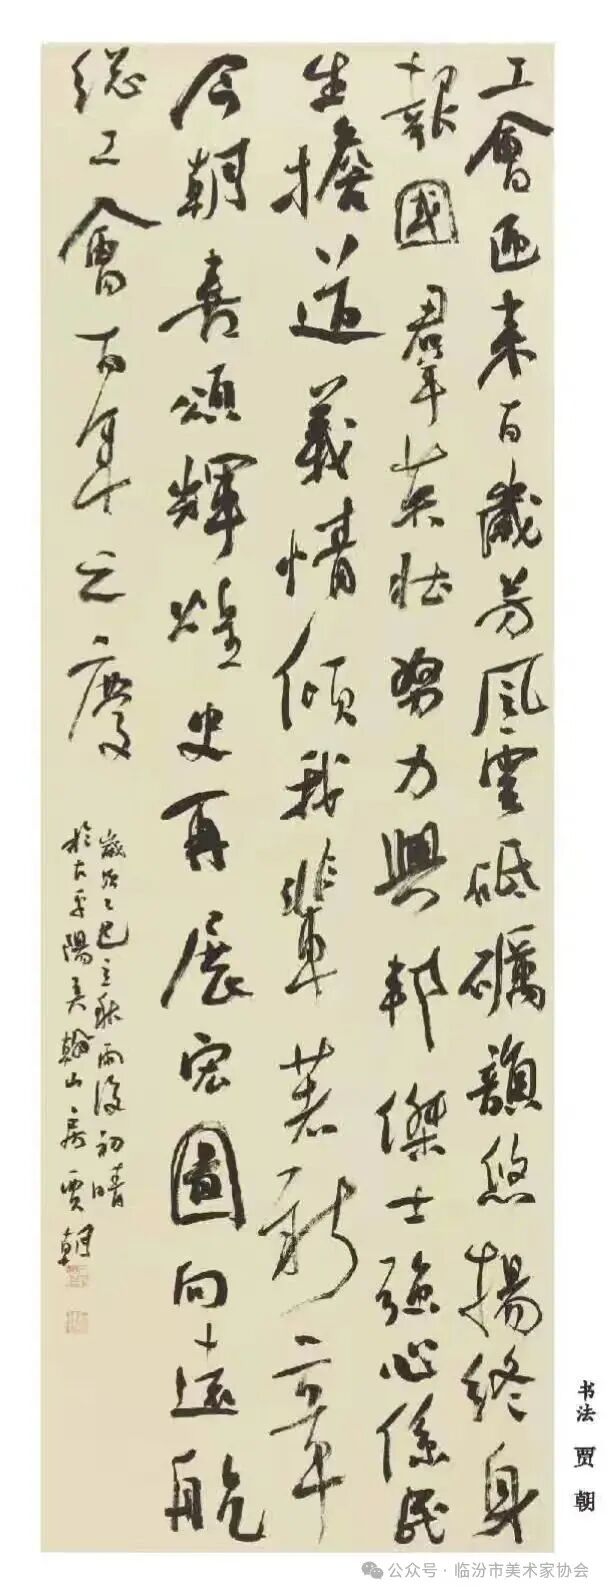 工會迎来百歲芳風雲砥礪韻悠揚終身
報國羣英壮努力興邦傑士強心係民
生擔道義情傾我輩著新章
今朝喜頌輝煌史再展宏圖向遠航
総工會百年之慶
歲次乙巳立秋雨後初晴
於古平陽美翰山房賈朝
书法 贾朝
公众号·临汾市美术家协会